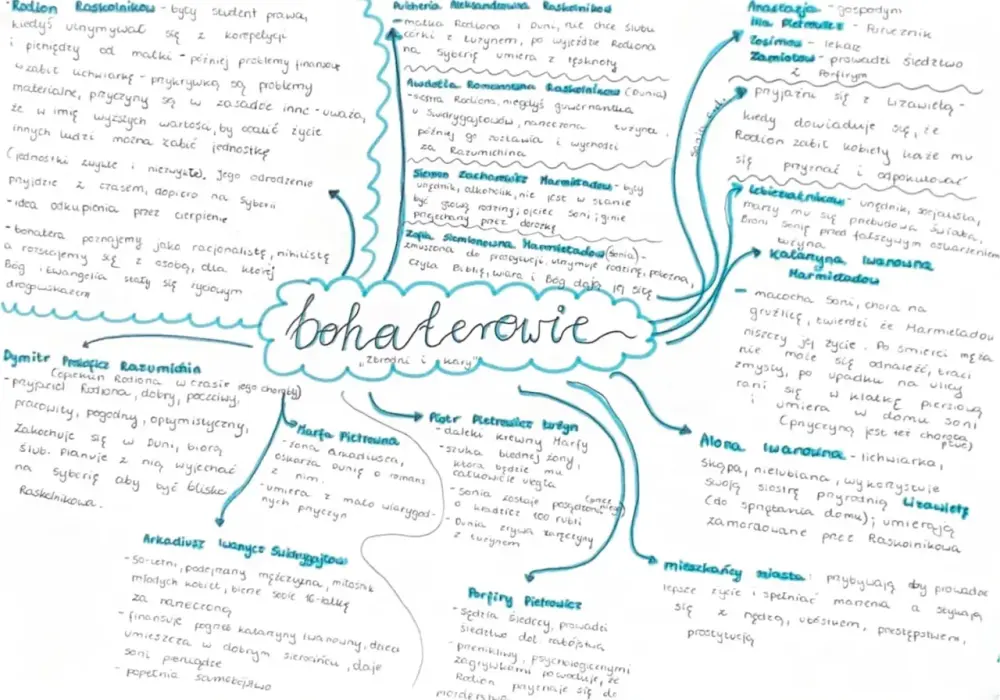 - Rodion Raskolnikow - były student prawa,
kiedyś utrzymywał się z korepetycji
i pieniędzy od matki - później problemy finansowe
- zabił lichwiarkę - przykrywką są problemy
materialne, przyczyny są w zasadzie inne - uważa,
że w imię wyższych wartości, by ocalić życie
innych ludzi można zabić jednostkę
(jednostki zwykłe i niezwykłe). Jego odrodzenie
przyjdzie z czasem, dopiero na Syberii
- idea odkupienia przez cierpienie
- bohatera poznajemy jako racjonalistę, nihilistę
a rozstajemy się z osobą, dla której
Bóg i Ewangelia stały się życiowym
drogowskazem
Pulcheria Aleksandrowna Raskolnikow
- matka Rodiona i Duni, nie chce ślubu
córki z Łużynem, po wyjeździe Rodiona
na Syberię umiera z tęsknoty
Awdotia Romanowna Raskolnikow (Dunia)
- siostra Rodiona, niegdyś guwernantka
u Swidrygajłowów, narzeczona Łużyna,
później go zostawia i wychodzi
za Razumichina
Siemion Zacharowicz Marmieładow - były
urzędnik, alkoholik, nie jest w stanie
być głową rodziny; ojciec Soni; ginie
przejechany przez dorożkę
Zofia Siemionowna Marmieładow (Sonia) -
zmuszona do prostytucji, utrzymuje rodzinę, pobożna,
czyta Biblię, wiara i Bóg dają jej siłę
Anastazja - gosposia
Ilia Pietrowicz - Porucznik
Zosimow - lekarz
Zamiotow - prowadzi śledztwo
z Porfirym
- przyjaźni się z Lizawietą -
kiedy dowiaduje się, że
Rodion zabił kobiety każe mu
się przyznać i odpokutować
Lebieziatnikow - urzędnik, socjalista,
marzy mu się przebudowa świata,
broni Sonię przed fałszywym oskarżeniem
Łużyna
Katarzyna Iwanowna
Marmieładow
- macocha Soni, chora na
gruźlicę, twierdzi że Marmieładow
niszczy jej życie. Po śmierci męża
nie może się odnaleźć, traci
zmysły, po upadku na ulicy
rani się w klatkę piersiową
i umiera w domu Soni
(przyczyną jest też choroba
płuc)
bohaterowie
"Zbrodni i kary"
Dymitr Prokoficz Razumichin
(opiekun Rodiona w czasie jego choroby)
- przyjaciel Rodiona, dobry, poczciwy,
pracowity, pogodny, optymistyczny,
zakochuje się w Duni, biorą
ślub. Planuje z nią wyjechać
na Syberię aby być blisko
Raskolnikowa.
Marfa Pietrowna
- żona Arkadiusza,
oskarża Dunię o romans
z nim.
- umiera z mało wiarygod-
nych przyczyn
Piotr Pietrowicz Łużyn
- daleki krewny Marfy
- szuka biednej żony,
która będzie mu
całkowicie uległa
- Sonia zostaje posądzona (przez niego)
o kradzież 100 rubli
- Dunia zrywa zaręczyny
z Łużynem
Alona Iwanowna - lichwiarka,
skąpa, nielubiana, wykorzystuje
swoją siostrę przyrodnią Lizawietę
(do sprzątania domu); umierają
zamordowane przez Raskolnikowa
Arkadiusz Iwanycz Swidrygajłow
- 50-letni, podejrzany mężczyzna, miłośnik
młodych kobiet, bierze sobie 16-latkę
za narzeczoną
- finansuje pogrzeb Katarzyny Iwanowny, dzieci
umieszcza w dobrym sierocińcu, daje
Soni pieniądze
- popełnia samobójstwo
Porfiry Pietrowicz
- sędzia śledczy, prowadzi
śledztwo dot. zabójstwa
- przenikliwy, psychologicznymi
zagrywkami powoduje, że
Rodion przyznaje się do
morderstwa
mieszkańcy miasta: przybywają aby prowadzić
lepsze życie i spełniać marzenia a stykają
się z nędzą, ubóstwem, przestępstwem,
prostytucją